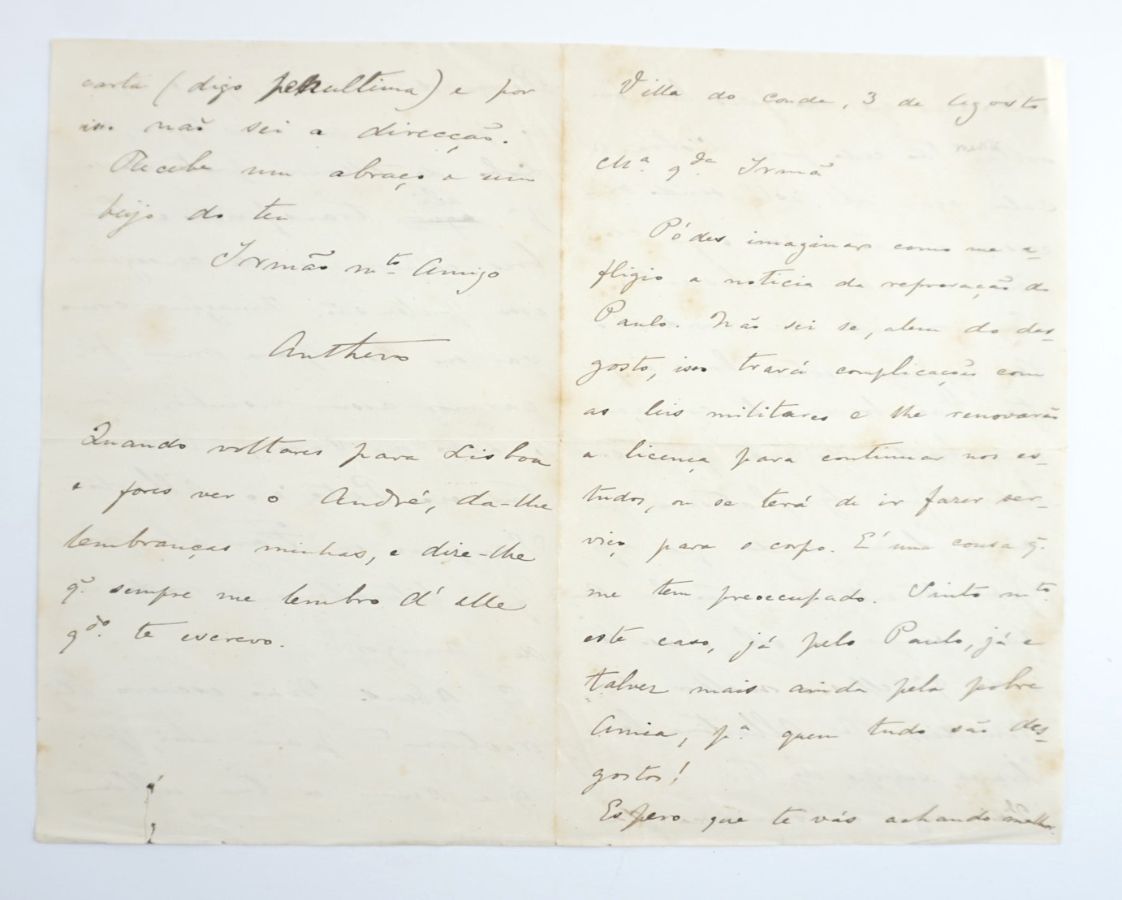 Villa do Conde, 3 de Agosto
M.ª q.da Irmã
Pódes imaginar como me a-
fligio a noticia da reprovação do
Paulo. Não sei se, alem do des-
gosto, isso trará complicações com
as leis militares e lhe renovarão
a licença para continuar nos es-
tudos, ou se terá de ir fazer ser-
viço para o corpo. E' uma cousa q.
me tem preoccupado. Sinto m.to
este caso, já pelo Paulo, já e
talvez mais ainda pela pobre
Amia, p.ª quem tudo são des-
gostos!
Espero que te vás achando melhor.
carta (digo penultima) e por
isso não sei a direcção.
Recebe um abraço e um
beijo do teu
Irmão m.to Amigo
Anthero
Quando voltares para Lisboa
e fores ver o André, da-lhe
lembranças minhas, e dize-lhe
q. sempre me lembro d'elle
q.do te escrevo.